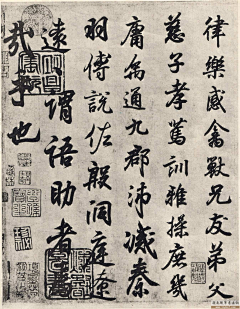 律樂感禽獸兄友弟父
慈子孝篤訓雅操庶幾
庸禹通九郡沛滅秦
羽傅說佐殷洞庭遼
遠謂語助者
哉乎也